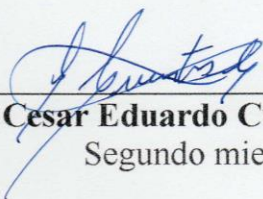 Cesar Eduardo C
Segundo mie